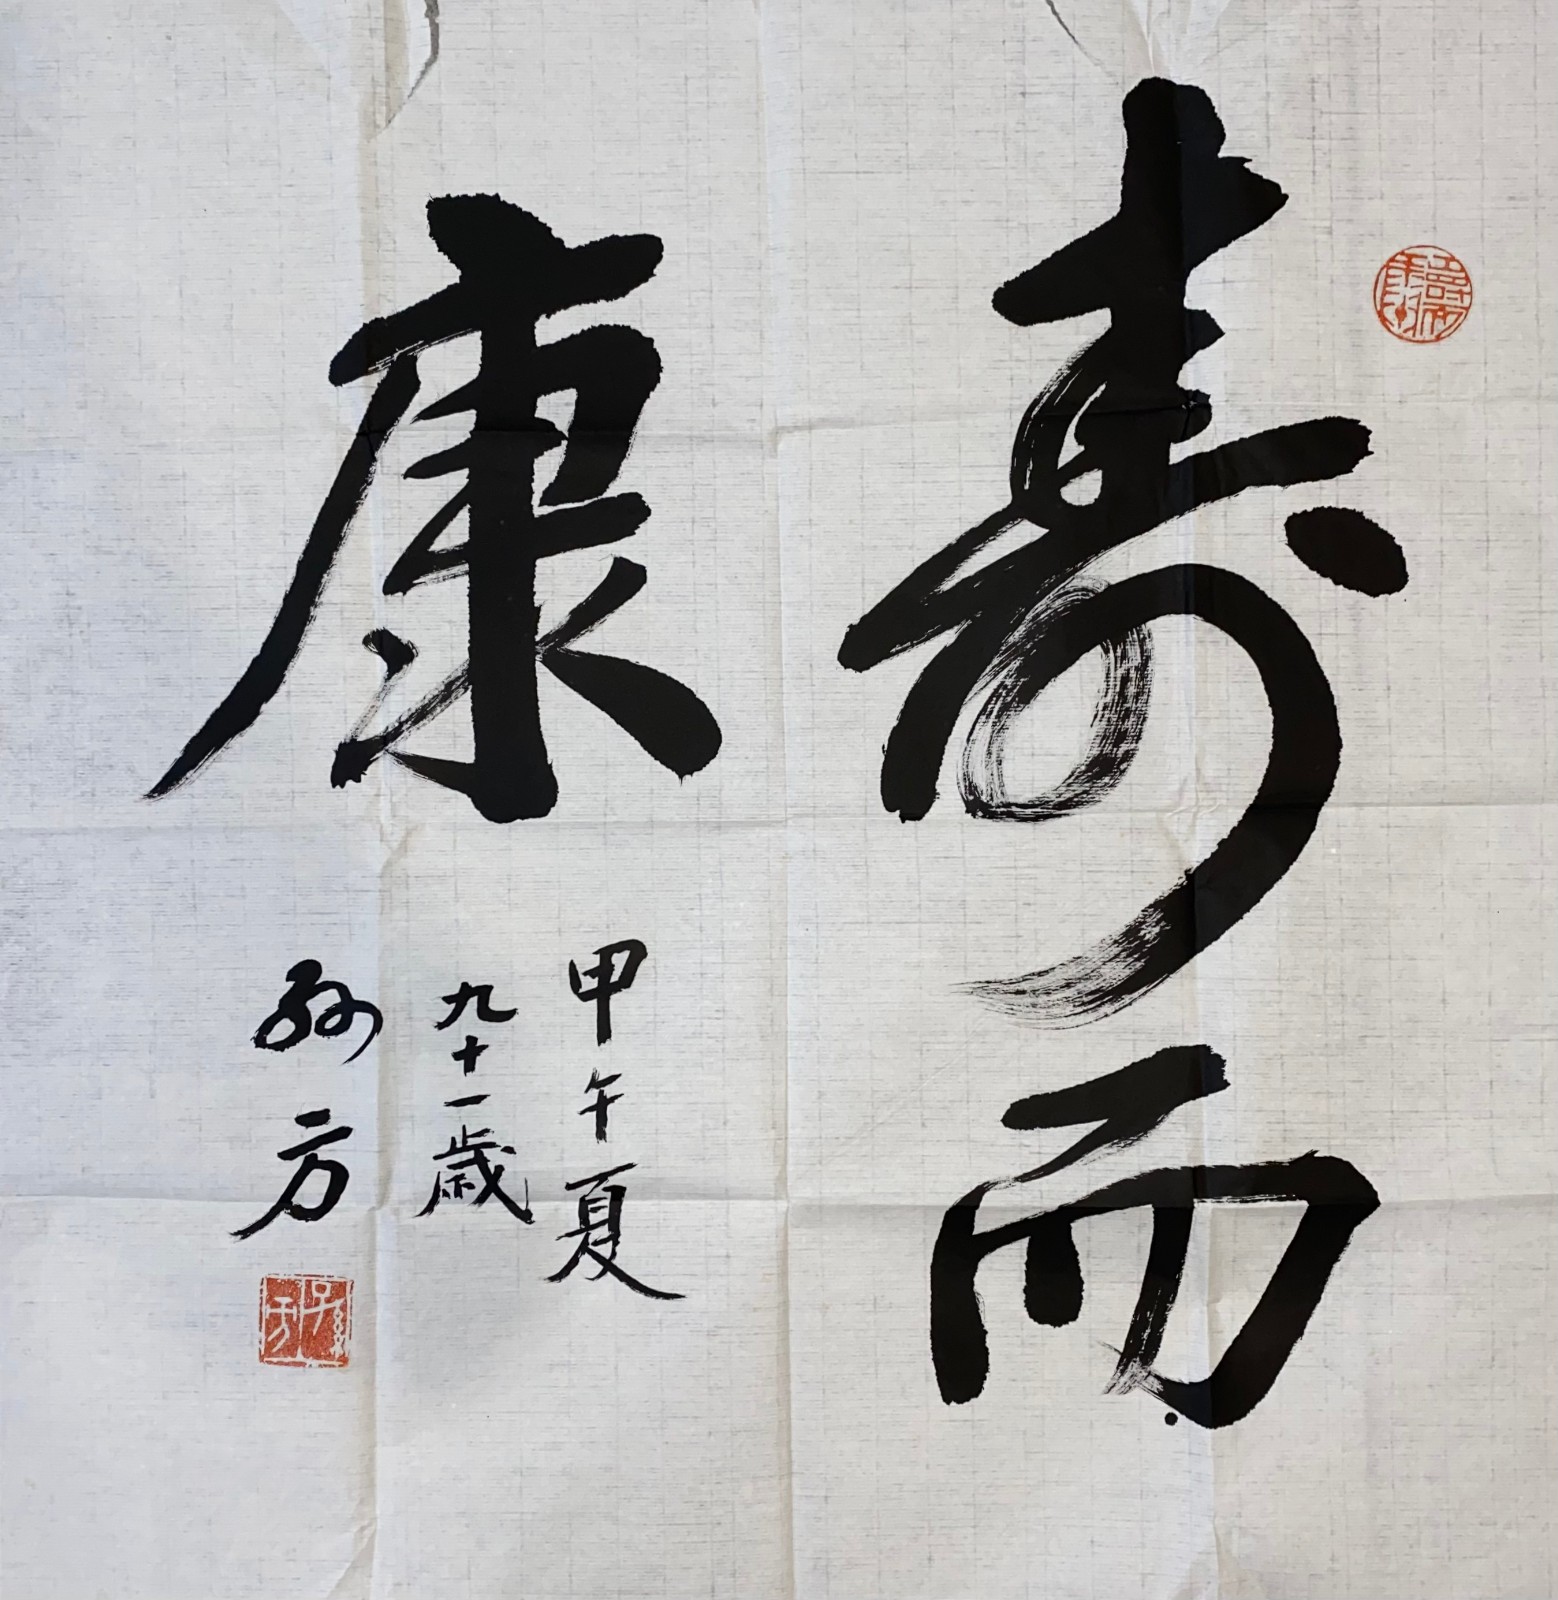 壽而
康
甲午夏
九十一歲
孫方
孫方